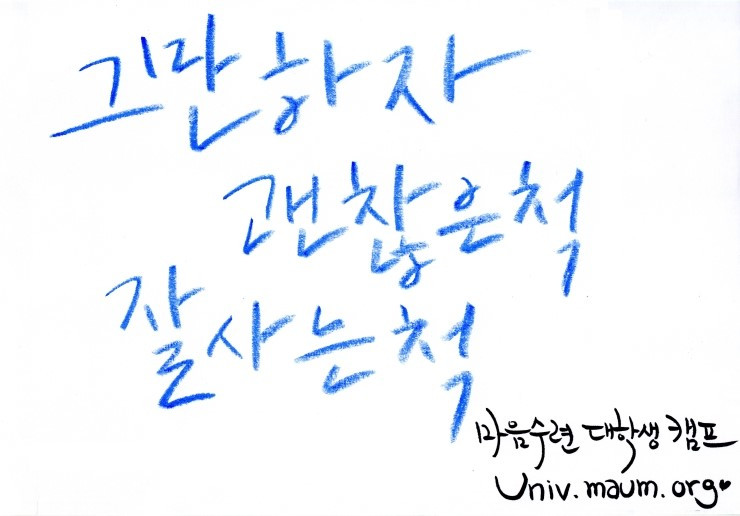 그만하자
괜찮은척
잘사는척
마음수련 대학생 캠프
Univ.maum.org♥